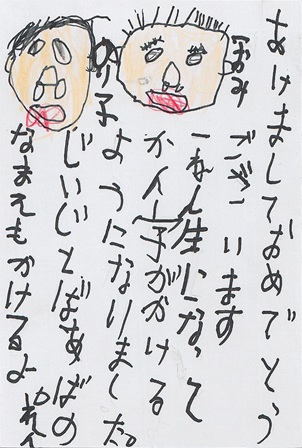 あけましておめでとう
ございます
一ねん生になって
かん字ががける
ようになりました。
じいじとばあばの
なまえもかけるよ